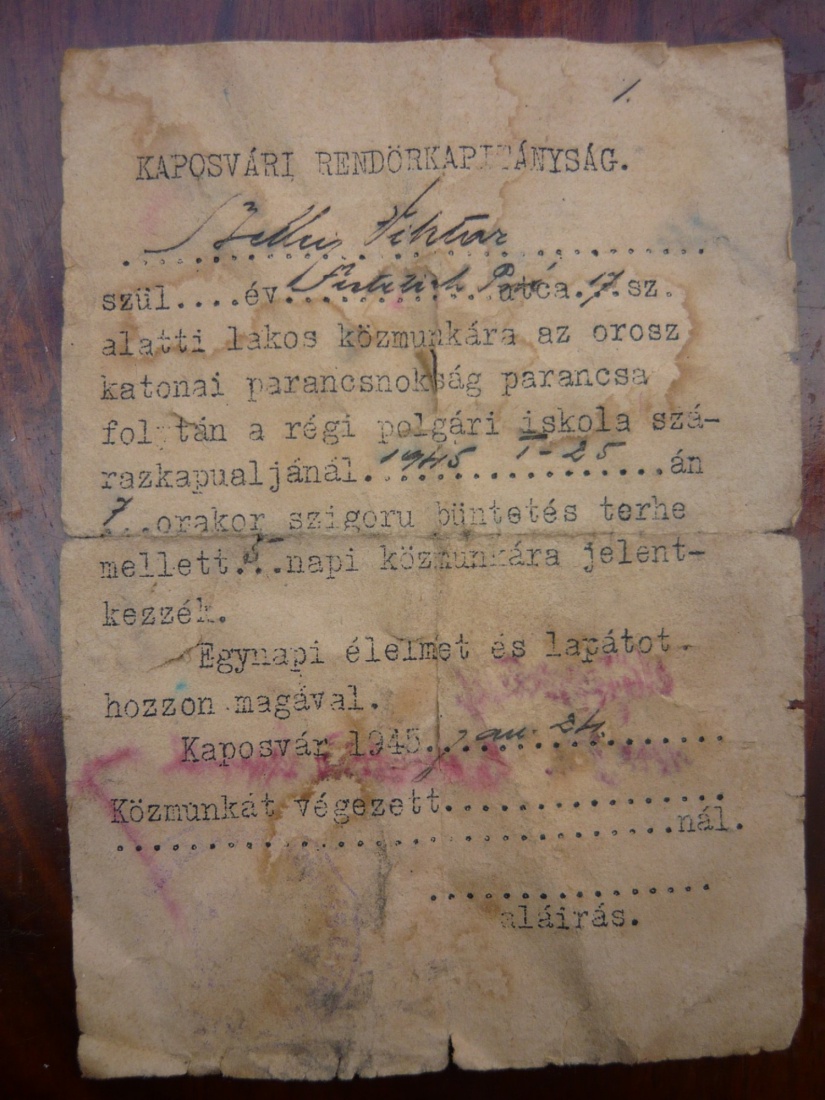 1.
KAPOSVÁRI RENDÖRKAPITÁNYSÁG.
Viktor
szül....év.............utca.17.sz.
alatti lakos közmunkára az orosz
katonai parancsnokság parancsa
folytán a régi polgári iskola szá-
razkapualjánál.1945 I-25.....án
7..orakor szigoru büntetés terhe
mellett...napi közmunkára jelent-
kezzék.
Egynapi élelmet és lapátot
hozzon magával.
Kaposvár 1945.jan. 24.............
Közmunkát végezett................
.................................nál.
.................
aláirás.